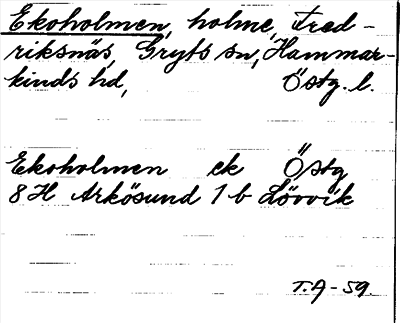 Ekoholmen, holme, Fred-
riksnäs, Gryts sn, Hammar-
kinds hd, Östg. l.
Ekoholmen ek Östg
8 H Arkösund 1 b Lövvik
T.A-59.